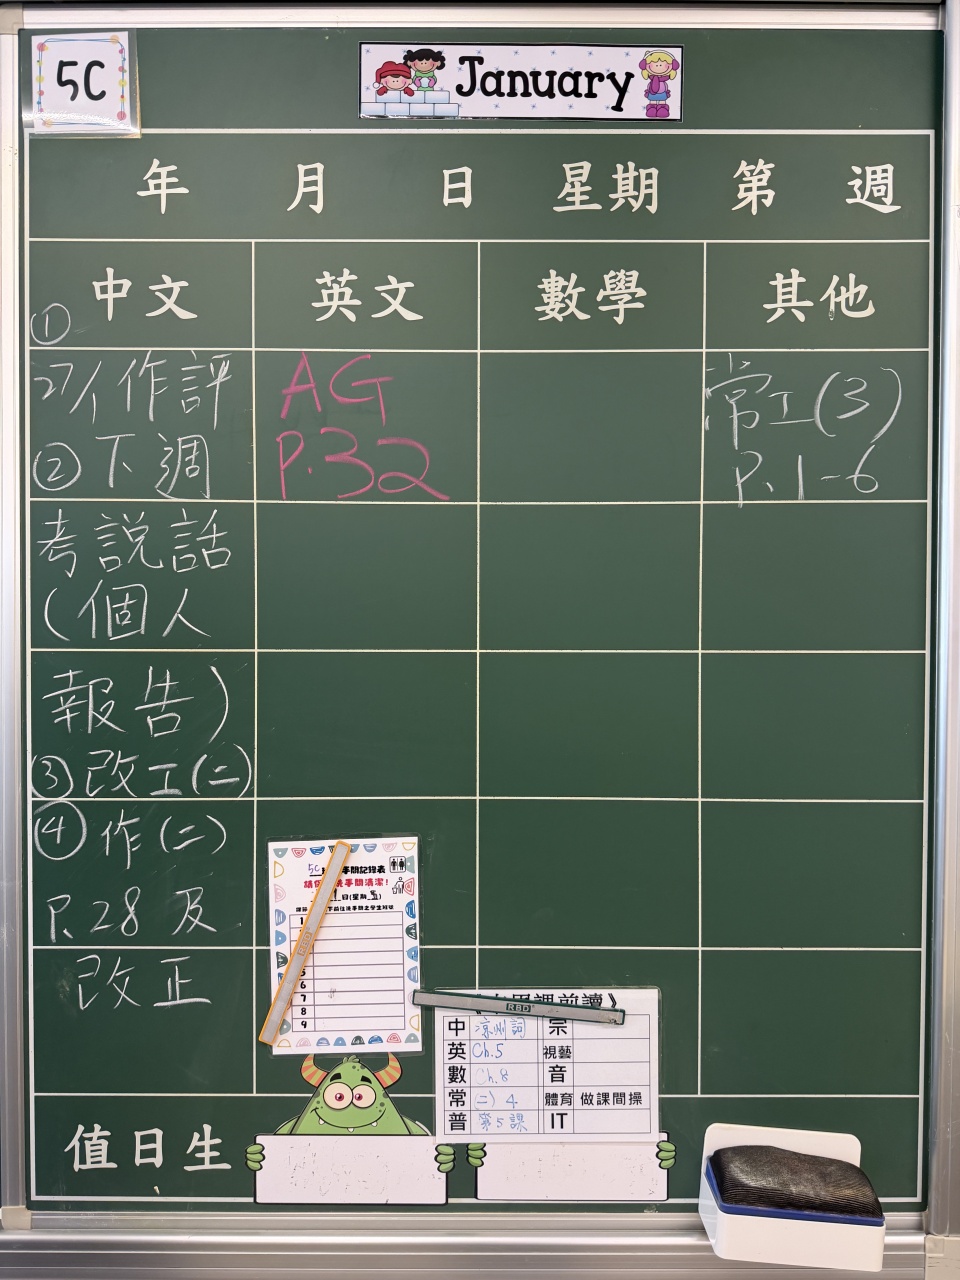 5C
January
年 月 日 星期 第 週
中文 英文 數學 其他
①
27/1作評
②下週
考說話
(個人
報告)
③改工(二)
④作(二)
P.28及
改正
AG
P.32
常工(3)
P.1-6
5C
手間記錄表
洗手間清潔!
日(星期五)
下前往洗手間之學生姓名
1
5
6
7
8
9
課前讀》
中 涼州詞 宗
英 Ch.5 視藝
數 Ch.8 音
常 (二) 4 體育 做課間操
普 第5課 IT
RBD
RBD
值日生